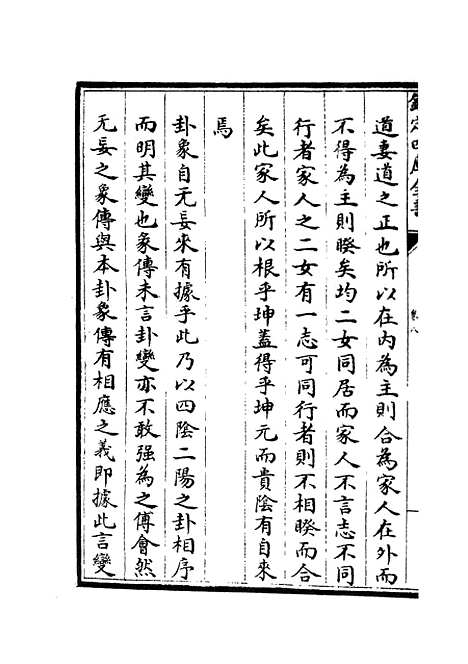 欽定四庫全書
卷八
道妻道之正也所以在內為主則合為家人在外而
不得為主則睽矣均二女同居而家人不言志不同
行者家人之二女有一志可同行者則不相睽而合
矣此家人所以根乎坤蓋得乎坤元而貴陰有自來
焉
卦象自无妄來有據乎此乃以四陰二陽之卦相序
而明其變也彖傳未言卦變亦不敢强為之傅會然
无妄之彖傳與本卦彖傳有相應之義即據此言變